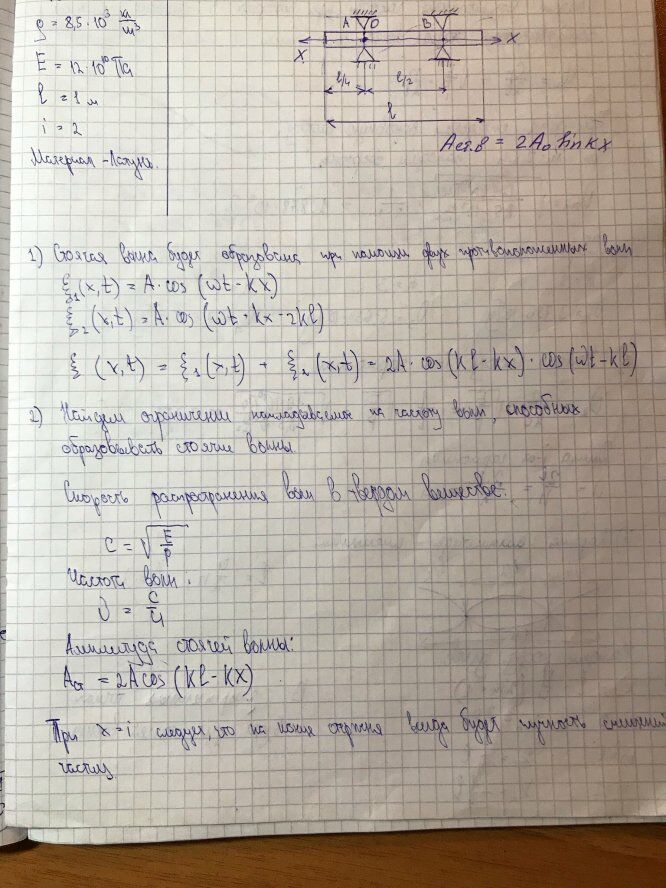 ρ = 8,5 · 10³ кг/м³
E = 12 · 10¹⁰ Па
l = 1 м
i = 2
Материал - Латунь.
A O B
X X
l/4 l/2
l
Aст.в = 2A₀ sin kx
1) Стоячая волна будет образована при помощи двух противоположенных волн
ξ₁(x,t) = A · cos (ωt - kx)
ξ₂(x,t) = A · cos (ωt + kx - 2kl)
ξ (x,t) = ξ₁(x,t) + ξ₂(x,t) = 2A · cos (kl - kx) · cos (ωt - kl)
2) Найдем ограничении накладываемое на частоту волн, способных
образовывать стоячие волны.
Скорость распространения волн в твердом веществе:
c = √(E/ρ)
Частота волн:
Амплитуда стоячей волны:
Aст = 2A cos (kl - kx)
При x = i следует, что на конце стержня всегда будет пучность смещений
частиц